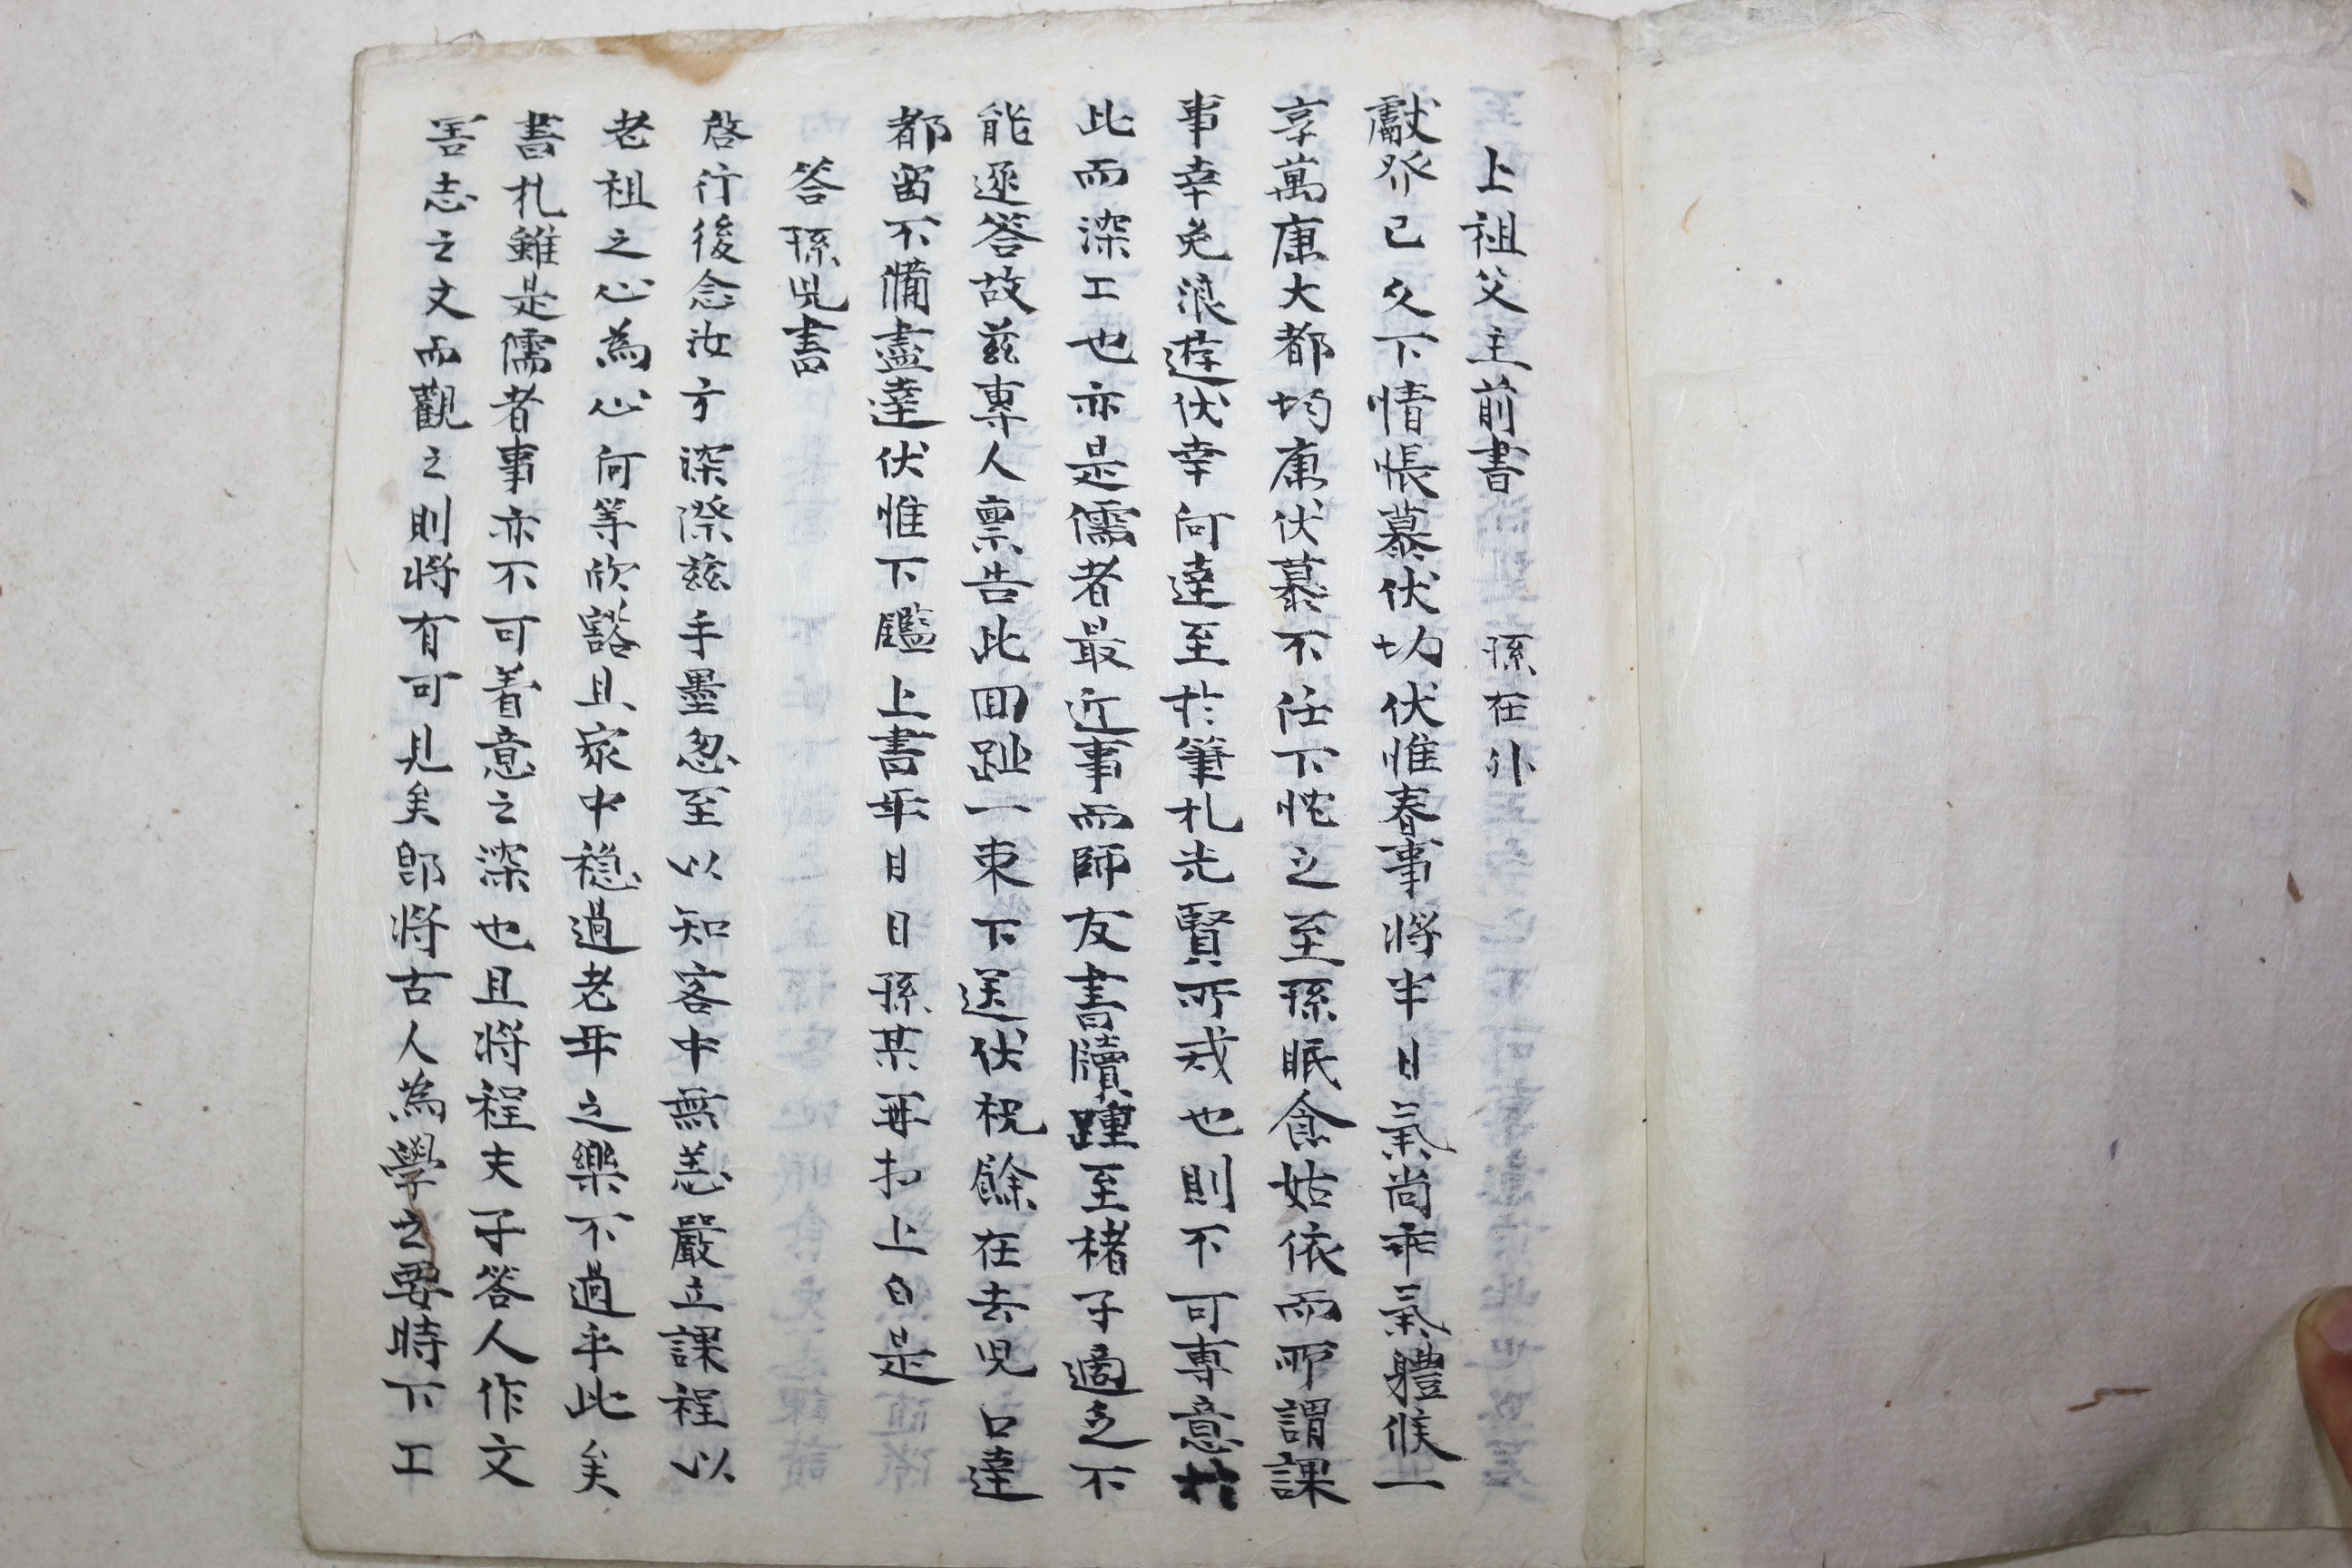 上祖父主前書 孫在外
獻發已久下情悵慕伏切伏惟春事將半日氣尙乖氣軆候一
享萬康大都均康伏慕不任下忱之至孫眠食姑依而所謂課
事幸免浪遊伏幸何達至於筆札先賢所戒也則不可專意於
此而深工也亦是儒者最近事而師友書牘踵至楮子適乏不
能逐答故玆專人禀告此回趾一束下送伏祝餘在去児口達
都留不備盡達伏惟下鑑上書年月日孫某再拜上白是
答孫児書
啓行後念汝方深際玆手墨忽至以知客中無恙嚴立課程以
老祖之心爲心何等欣豁且家中穩過老年之樂不過乎此矣
書札雖是儒者事亦不可着意之深也且將程夫子答人作文
害志之文而觀之則將有可見矣卽將古人爲學之要時下工